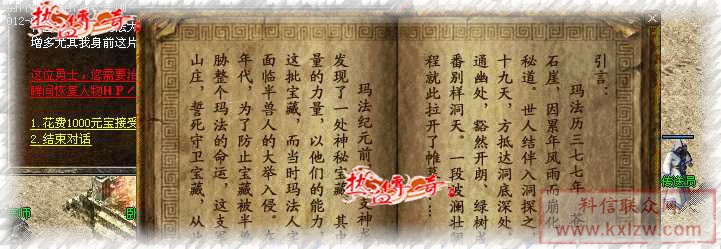 引言：
玛法历三七七年，苍
石崖，因累年风雨而崩化
秘道。世人结伴入洞探之
十九天，方抵达洞底深处。
通幽处，豁然开朗、绿树
番别样洞天。一段波澜壮
程就此拉开了帷幕……
玛法纪元前，神
发现了一处神秘宝藏，其中
量的力量，以他们的能力
这批宝藏，而当时玛法人
面临半兽人的大举入侵。在
年代，为了防止宝藏被半兽
胁整个玛法的命运，这支
山庄，誓死守卫宝藏，从
012-0
增多尤其我身前这片
这位勇士，您需要治
瞬间恢复人物HP/
1.花费1000元宝接受
2.结束对话
传送员
科信联众网
www.kxlzw.com